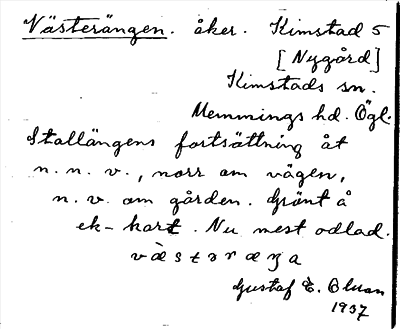 Västerängen. åker. Kimstad 5
[Nygård]
Kimstads sn.
Memmings hd. Ögl.
Stallängens fortsättning åt
n.n.v., norr om vägen,
n.v. om gården. Grönt å
ek-kart. Nu mest odlad.
Gustaf E.
1937